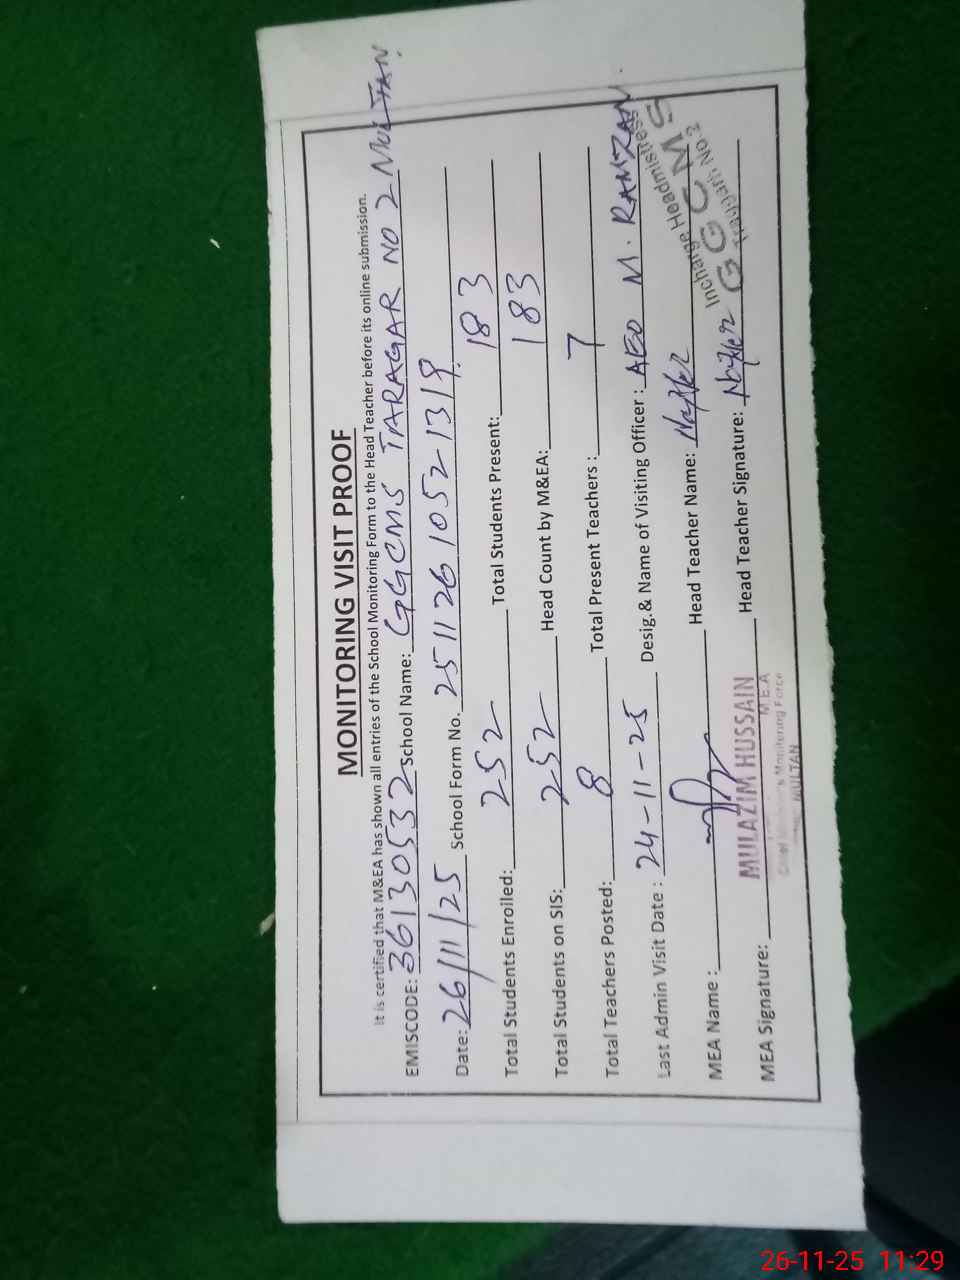 MONITORING VISIT PROOF
It is certified that M&EA has shown all entries of the School Monitoring Form to the Head Teacher before its online submission.
EMISCODE: 36130532 School Name: GGCMS TARAGAR NO 2 MULTAN.
Date: 26/11/25 School Form No. 25112610521319
Total Students Enrolled: 252 Total Students Present: 183
Total Students on SIS: 252 Head Count by M&EA: 183
Total Teachers Posted: 8 Total Present Teachers : 7
Last Admin Visit Date : 24-11-25 Desig.& Name of Visiting Officer : AEO M. RAMZAN
MEA Name : Head Teacher Name:
MEA Signature: Head Teacher Signature:
MULAZIM HUSSAIN
M.E.A
Monitoring Force
MULTAN
Incharge Headmistress
GGCMS
No.2
26-11-25 11:29